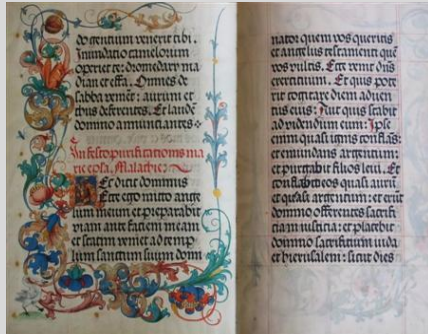 do gentium venerit tibi.
Inundatio camelorum
operiet te: dromedarii ma
dian et effa. Omnes de
sabba venient: aurum et
thus deferentes. Et laudē
domino annunciantes.
In festo purificationis ma
rie epła. Malachie.
Hec dicit dominus
Ecce ego mitto ange
lum meum et preparabit
viam ante faciem meam
et statim veniet ad temp
lum sanctum suum domi
nator quem vos queritis
et angelus testamenti quē
vos vultis. Ecce venit dn̄s
exercituum. Et quis pote
rit cogitare diem aduen
tus eius: Aut quis stabit
ad videndum eum: Ipse
enim quasi ignis conflās:
et emundans argentum:
et purgabit filios leui. Et
conflabit eos quasi aurū
et quasi argentum: et erūt
domino offerentes sacrifi
cia in iusticia: et placebit
domino sacrificium iuda
et hierusalem: sicut dies